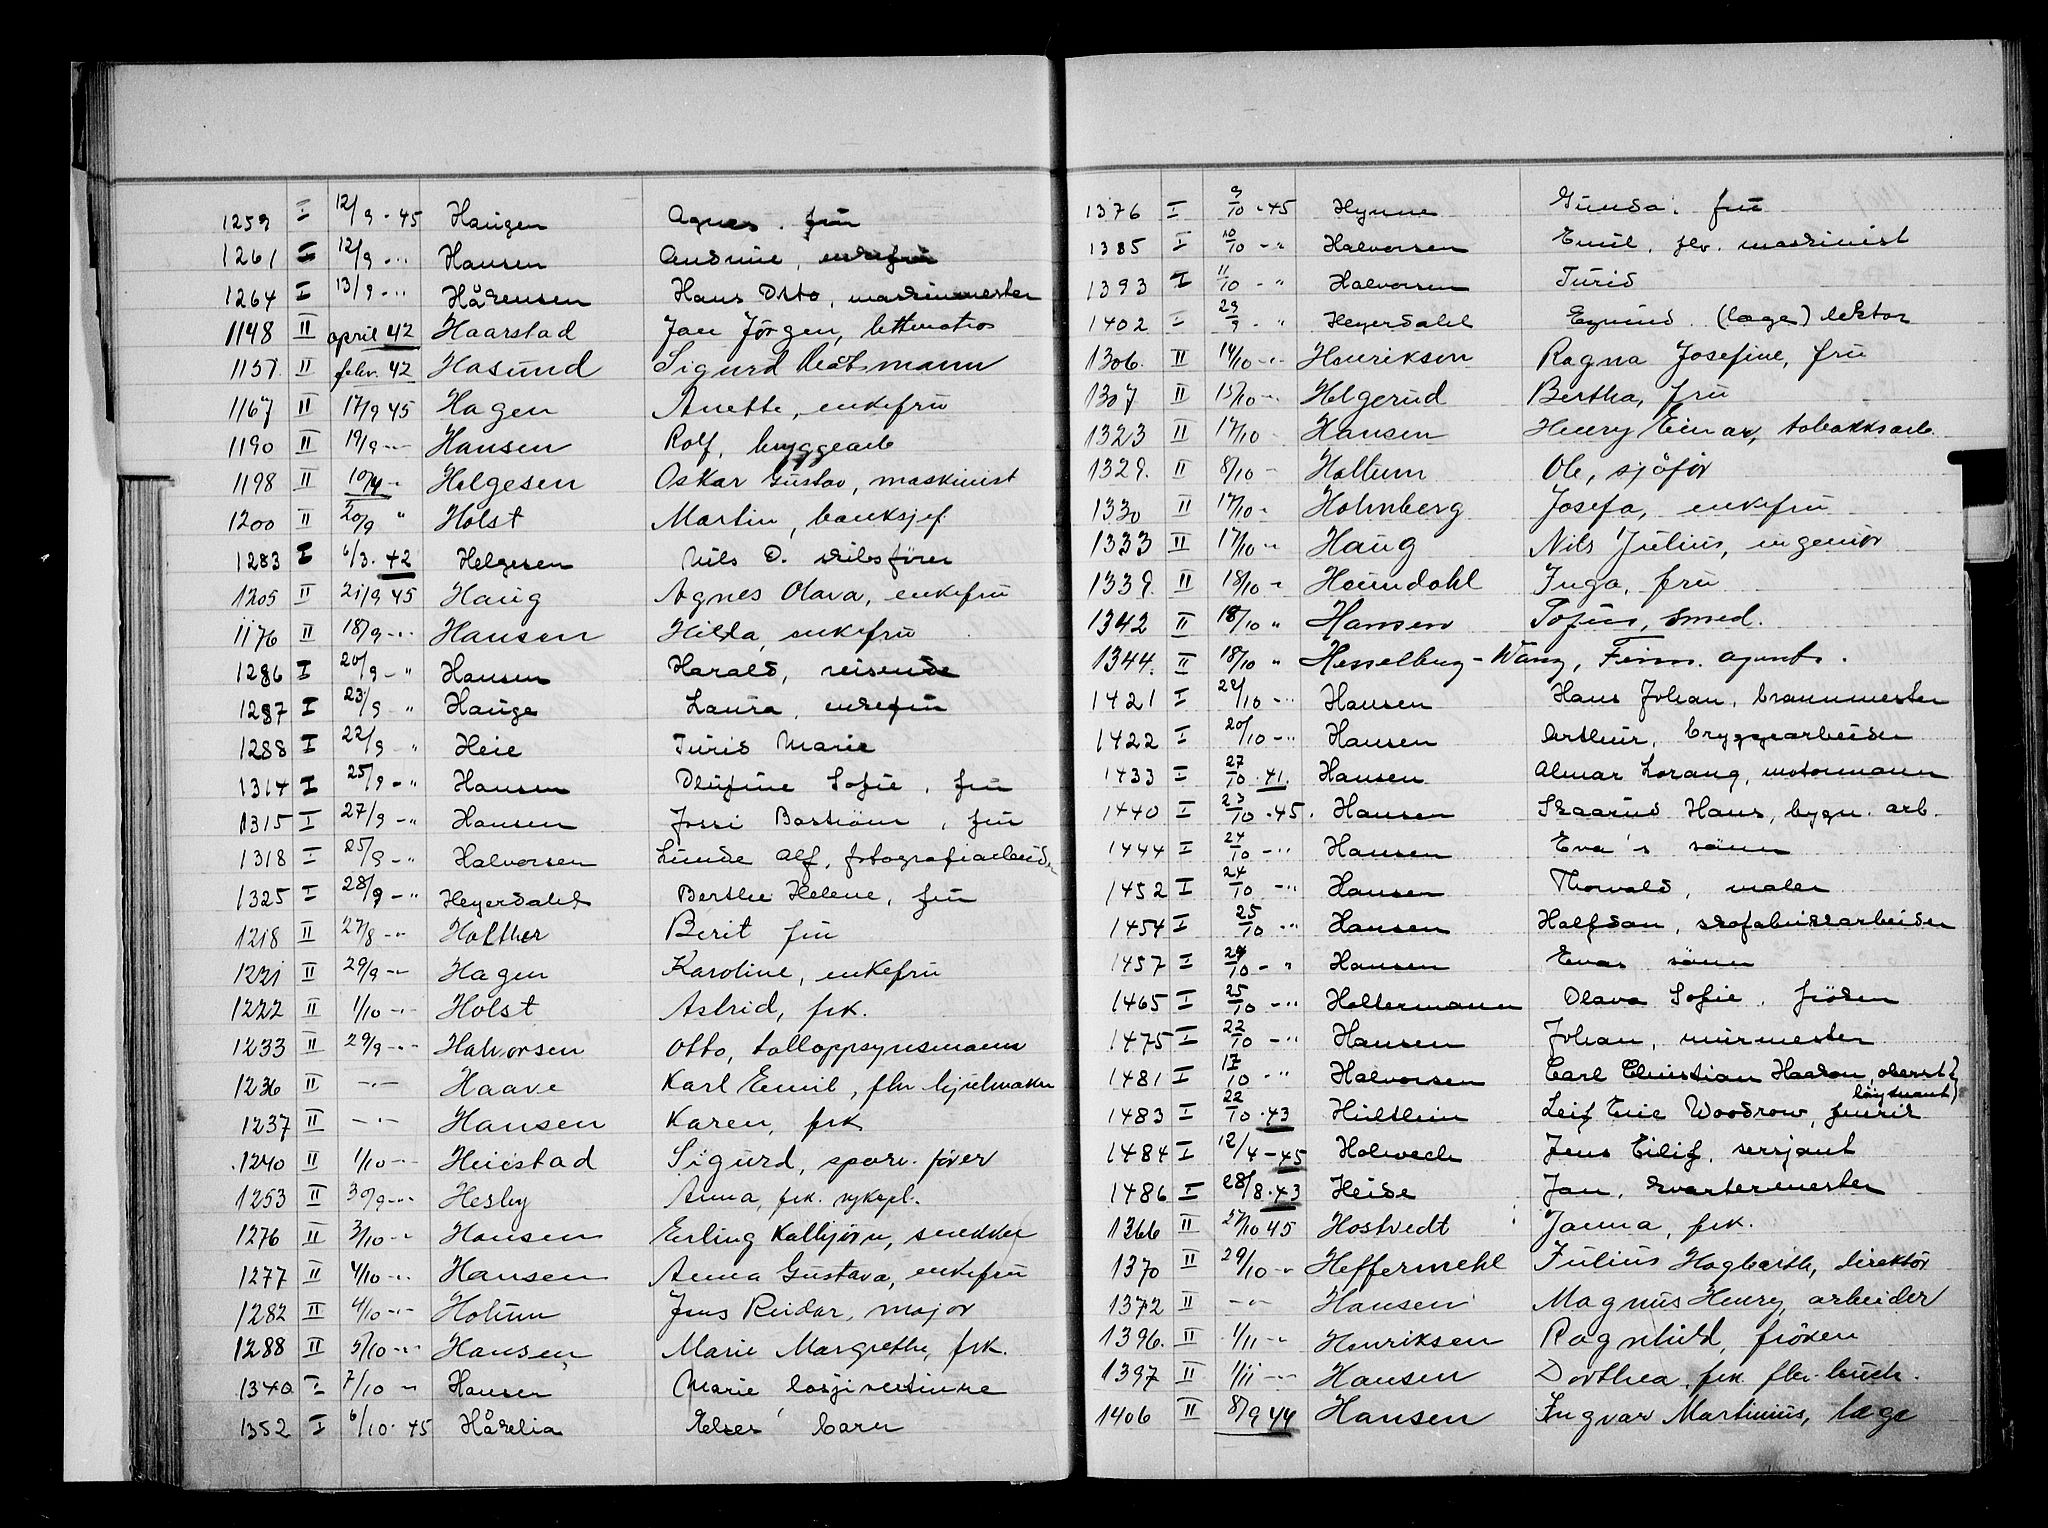 1259 I 12/9 - 45 Haugen Agnes. fru
1261 I 12/9 - " Hansen Andrine, enkefru
1264 I 13/9 - " Håkensen Hans Otto, maskinmester
1148 II april 42 Haarstad Jan Jörgen,
1157. II febr. 42 Hasund Sigurd
1167 II 17/9 45 Hagen Anette, enkefru
1190 II 19/9 - " Hansen Rolf, bryggearb
1198 II 10/4 - " Helgesen Oskar Gustav, maskinist
1200 II 20/9 " Holst Martin, banksjef
1283 I 6/3. 42 Helgesen Nils O. skibsförer
1205 II 21/9 45 Haug Agnes Olava, enkefru
1176 II 18/9 - " Hansen Hilda, enkefru
1286 I 20/9 - " Hansen Harald, reisende
1287 I 23/9 " Hauge Laura, enkefru
1288 I 22/9 " Heie Turid Marie
1314 I 25/9 - " Hansen Olufine Sofie, fru
1315 I 27/9 - " Hansen , fru
1318 I 25/9 - " Halvorsen Lunde Alf, fotografiarbeider
1325 I 28/9 - " Heyerdahl Berthe Helene, fru
1218 II 27/8 - " Holther Berit fru
1221 II 29/9 - " Hagen Karoline, enkefru
1222 II 1/10 - " Holst Astrid, frk.
1233 II 29/9 - " Halvorsen Otto, tolloppsynsmann
1236 II - " - Haave Karl Emil, fhv hjulmaker
1237 II - " - Hansen Karen, frk
1240 II 1/10 - " Heiestad Sigurd, sporv. förer
1253 II 30/9 - " Hesby Anna, frk. sykepl.
1276 II 3/10 - " Hansen Erling Kalbjörn, snekker
1277 II 4/10 - " Hansen Anna Gustava, enkefru
1282 II 4/10 - " Holum Jens Reidar, major
1288 II 5/10 - " Hansen Marie Margrethe, frk.
1340 I 7/10 - " Hansen Marie losjivertinne
1352 I 6/10. 45 Hårelia Elses barn
1376 I 9/10 - 45 Hynne Gunda. fru
1385 I 10/10 - " Halvorsen Emil, fhv. maskinist
1393 I 11/10 - " Halvorsen Turid
1402 I 29/9 - " Heyerdahl Eyvind. (læge) lektor
1306. II 14/10 - " Henriksen Ragna Josefine, fru
1307 II 15/10 - " Helgerud Bertha, fru
1323 II 17/10 - Hansen Henry Einar, tobakksarb
1329. II 8/10 - Holtum Ole, sjåför
1330 II 17/10 " Holmberg Josefa, enkefru
1333 II 17/10 - " Haug Nils Julius, ingeniör
1339. II 18/10 - " Heimdahl Inga, fru
1342 II 18/10 " Hansen Sofus, smed.
1344. II 18/10 " Hesselberg - Wang, Finn. agent.
1421 I 22/10 - " Hansen Hans Johan, brannmester
1422 I 20/10 - " Hansen Arthur, bryggearbeider
1433 I 27/10 . 41. Hansen Almar Lorang, motormann
1440 I 23/10 . 45. Hansen Skaarud Hans, bygn. arb.
1444 I 24/10 - " Hansen Eva's sönn
1452 I 24/10 - " Hansen Thorvald, maler
1454 I 25/10 - " Hansen Halfdan, skofabrikkarbeider
1457 I 24/10 - " Hansen Evas sönn
1465 I 25/10 - " Holtermann Olava Sofie, fröken
1475 I 22/10 - " Hansen Johan, murmester
1481 I 17/10 - " Halvorsen Carl Christian Haakon, oberst
löytnant)
1483 I 22/10 . 43 Hultlein Leif Eric Woodrow, fenrik
1484 I 12/4 - 45 Holwech Jens Eilif, sersjant
1486 I 28/8 . 43 Heide Jan, kvartermester
1366 II 27/10 45 Hostvedt Janna, frk.
1370 II 29/10 - " Heffermehl Julius Hagbarth, direktör
1372 II - " - Hansen Magnus Henry, arbeider
1396. II 1/11 - " Henriksen Ragnhild, fröken
1397 II 1/11 - " Hansen Dorthea, frk. fhv.
1406 II 8/9 44 Hansen Ingvar Martinius, læge